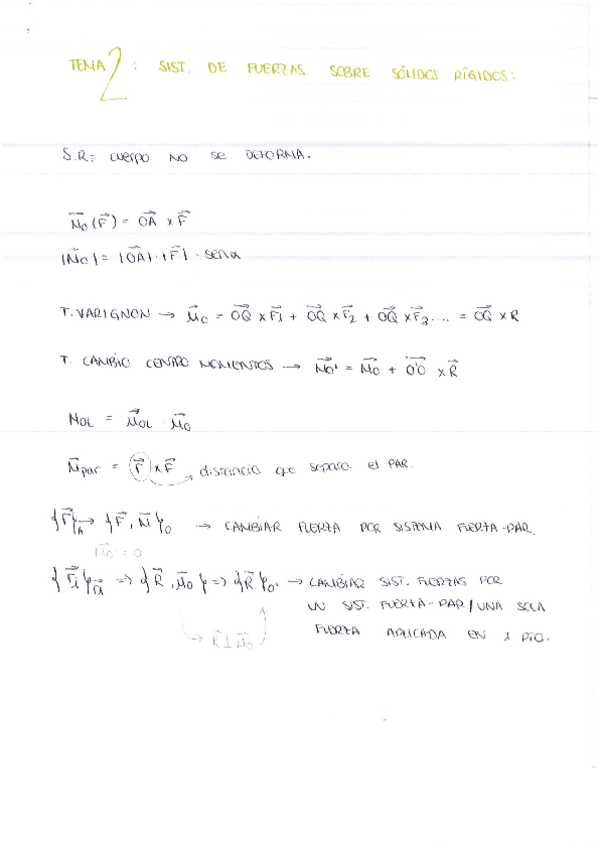 TEMA 2: SIST. DE FUERZAS SOBRE SÓLIDOS RÍGIDOS:
S.R= cuerpo NO se DEFORMA.
M⃗o (F⃗) = OA⃗ x F⃗
|M⃗o| = |OA⃗| · |F⃗| · senα
T. VARIGNON → M⃗o = OQ⃗ x F⃗1 + OQ⃗ x F⃗2 + OQ⃗ x F⃗3 .... = OQ⃗ x R
T. CAMBIO CENTRO MOMENTOS → M⃗o' = M⃗o + O'O⃗ x R⃗
MOL = μ⃗OL · M⃗o
M⃗par = r⃗ x F⃗ → distancia que separa el PAR.
{F⃗}A → {F⃗, M⃗}o → CAMBIAR FUERZA POR SISTEMA FUERZA-PAR.
M⃗o' = 0
{F⃗i}Ai => {R⃗, M⃗o} => {R⃗}o' → CAMBIAR SIST. FUERZAS POR
UN SIST. FUERZA-PAR/UNA SOLA
R⃗ ⊥ M⃗o
FUERZA APLICADA EN 1 PTO.